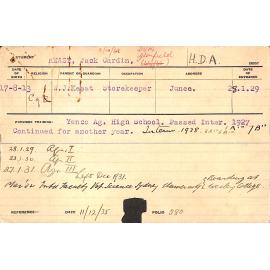 STUDENT
KEAST, Jack Cardin, H.D.A.
DATE OF BIRTH RELIGION PARENT OR GUARDIAN OCCUPATION ADDRESS DATE OF ENTRANCE
17-8-13 C of E W.J.Keast Storekeeper Junee. 28.1.29
PREVIOUS TRAINING: Yanco Ag. High School. Passed Inter. 1927
Continued for another year. Inter 1928 "A" "B"
28.1.29 Ag. I
22.1.30 Ag. II
27.1.31 Ag. III
Left Dec 1931.
Faculty Science Sydney College.
REFERENCE: DATE 11/12/25 FOLIO 380